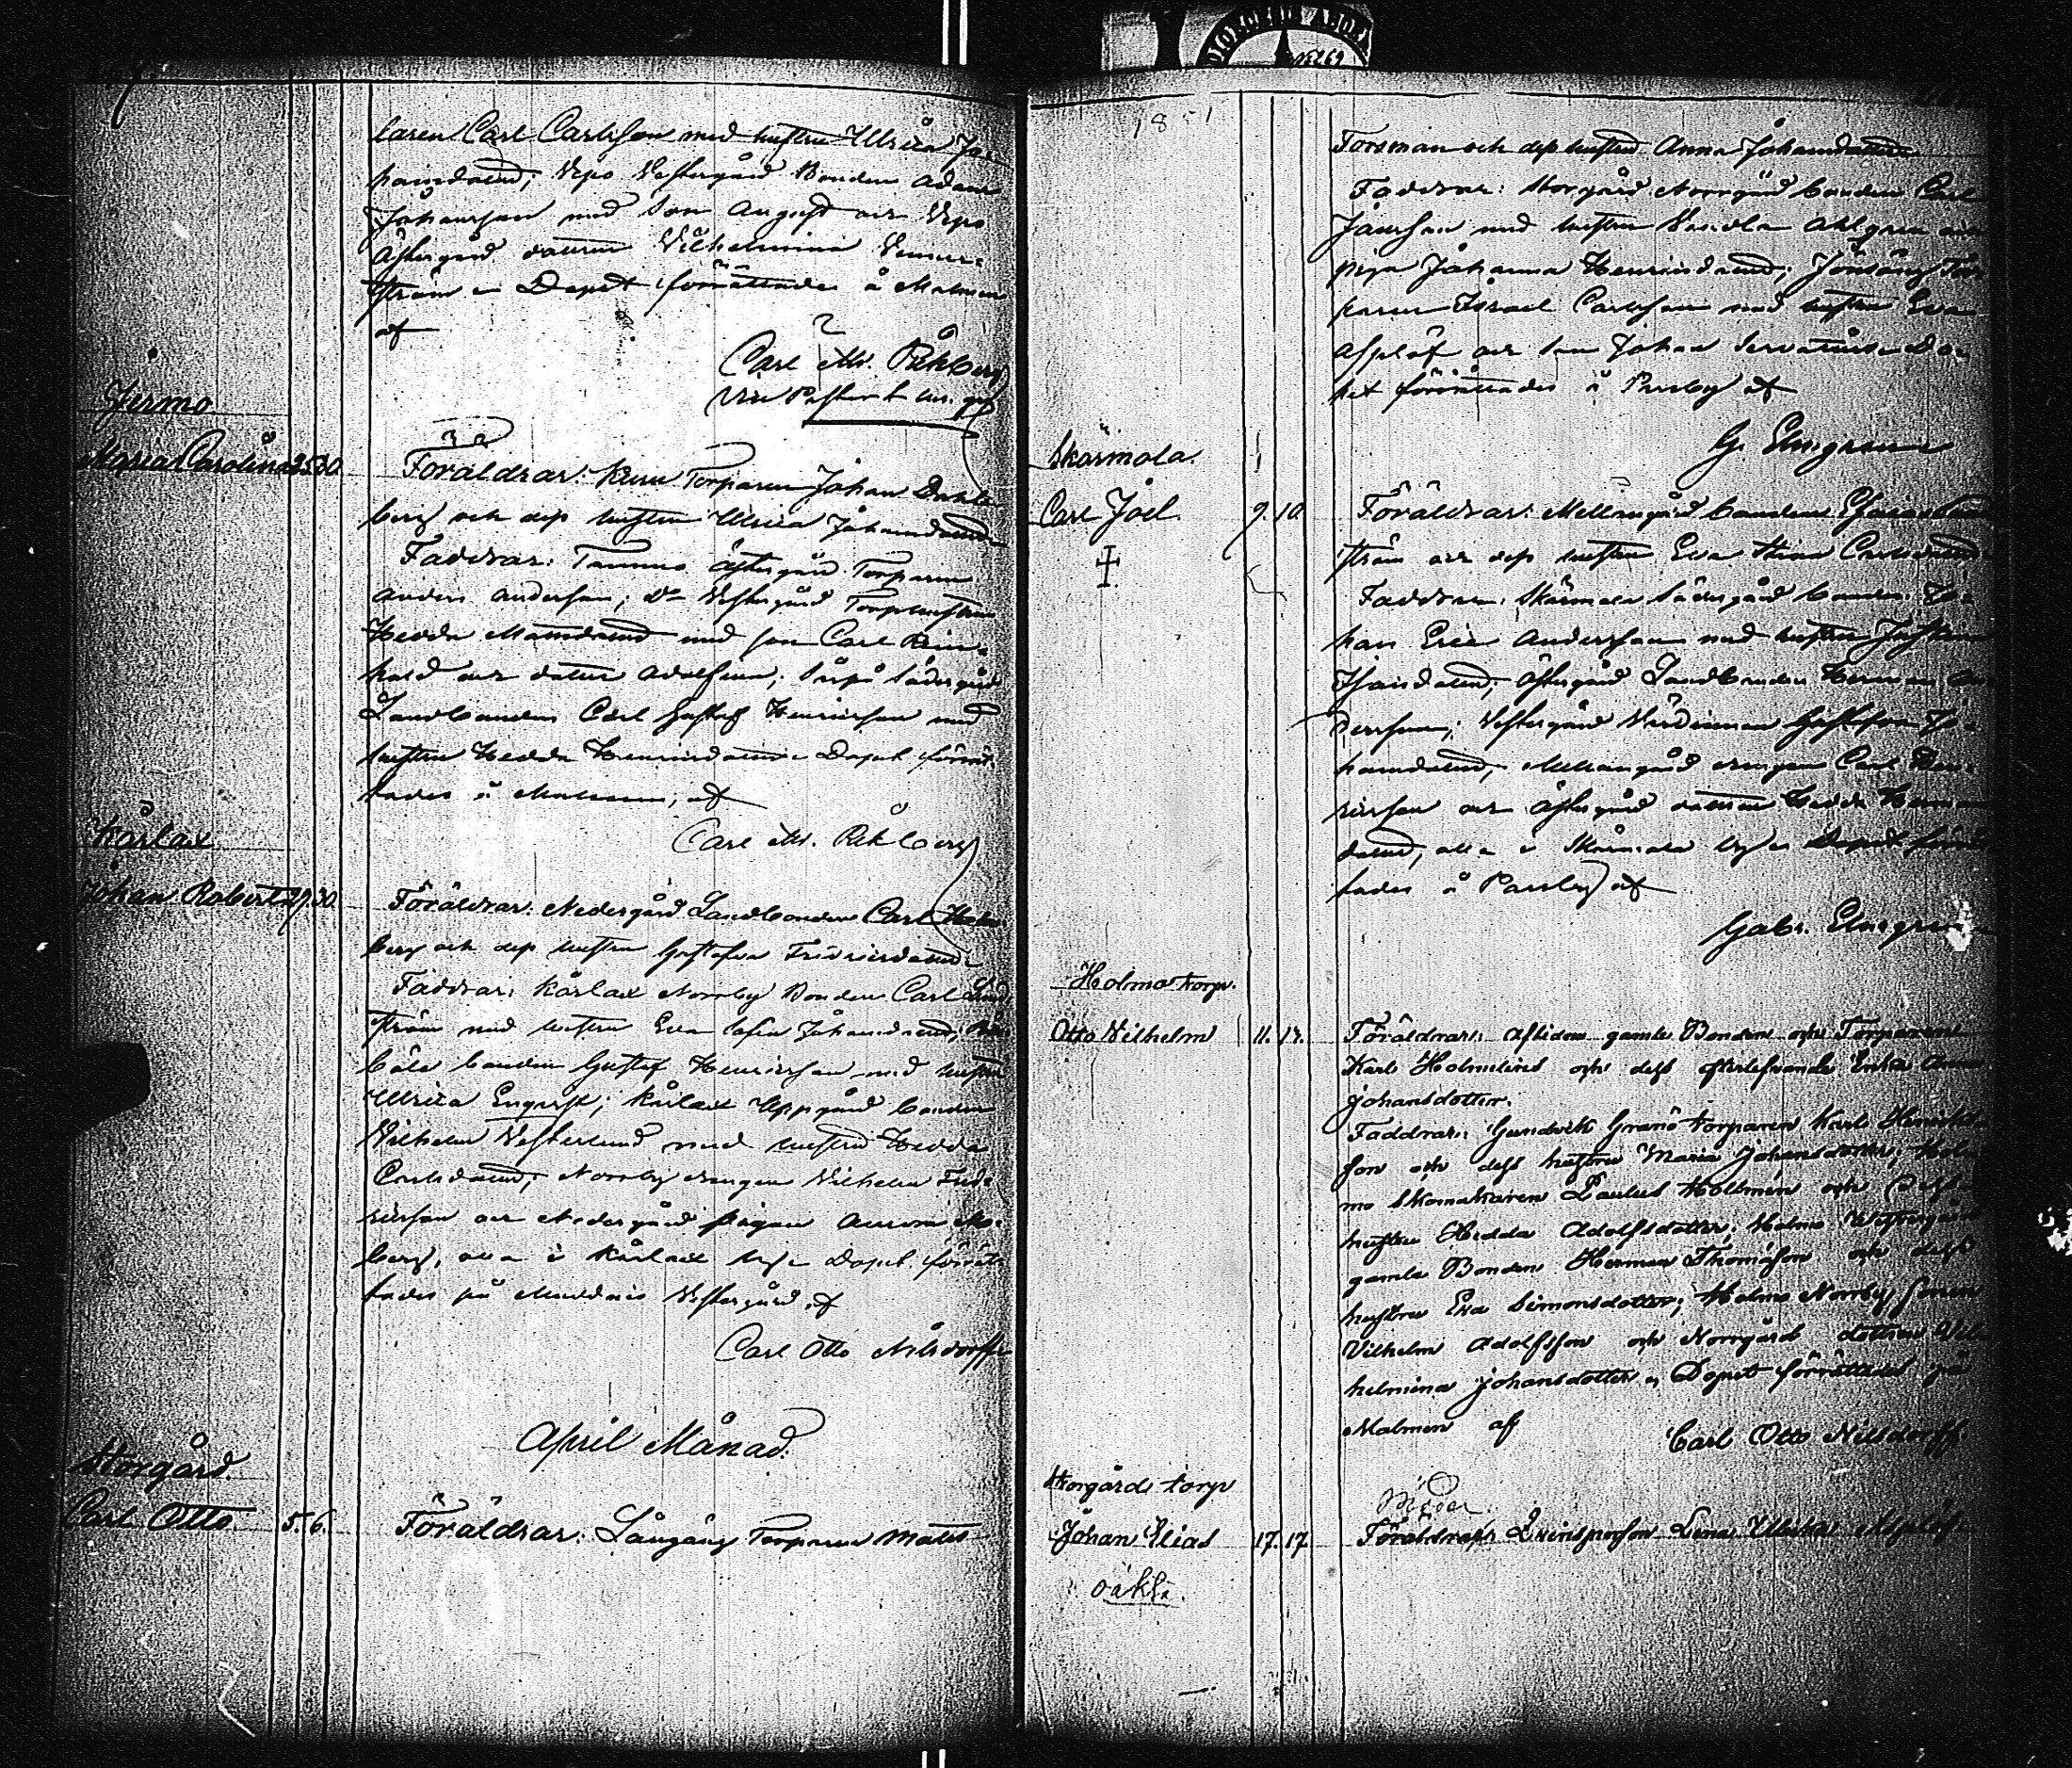 laren Carl Carlsson med hustru Ulrica Jo-
hansdotter; Vepo Vestergård Bonden Adam
Johansson med son August och Vepo
Östergård dottren Vilhelmina Venner-
ström. Dopet förrättades å Malmen
af
Carl M. Rehberg
Vice Pastor
Jermo
Maria Carolina 25. 30.
Föräldrar: Torparen Johan Dahl-
berg och dess hustru Ulrica Johansdotter
Faddrar: Tammo Östergård Torparen
Anders Andersson; Do Vestergård Torparhustrun
Hedda Mattsdotter med son Carl Rein-
hold och dotter Adolfina; Södergård
Landbonden Carl Gustaf Henricsson med
hustru Hedda Henricsdotter. Dopet förrät-
tades å Malmen, af
Carl M. Rehberg
Kårlax
Johan Robert 29. 30.
Föräldrar: Nedergård Landbonden Carl Holm-
berg och dess hustru Gustafva Fredricsdotter
Faddrar: Kårlax Norrby Bonden Carl Lind-
ström med hustru Eva Sofia Johansdotter;
böle bonden Gustaf Henricsson med hustru
Ulrica Engqvist; Kårlax Uppgård bonden
Vilhelm Vesterlund med hustru Hedda
Carlsdotter; Norrby drengen Vilhelm Fred-
ricsson och Nedergård pigan Aurora
berg, alla i Kårlax by. Dopet förrät-
tades på Vestergård, af
Carl Otto Nilsdorff
April Månad.
Storgård
Carl Otto 5. 6.
Föräldrar: Långäng Torparen Matts
1851
Forsman och dess hustru Anna Johansdotter
Faddrar: Storgård Norrgård bonden Carl
Jansson med hustru Vendla Ahlgren och
piga Johanna Henricsdotter; Tor-
paren Israel Carlsson med hustru Eva
Asplöf och son Johan Servatius. Do-
pet förrättades å Parsby af
G. Elmgren
Skärmola.
Carl Joel. 9. 10.
Föräldrar: Mellangård bonden
ström och dess hustru Eva Stina Carlsdotter
Faddrar: Skärmola Södergård bonden Jo-
han Eric Andersson med hustru Justina
Isaksdotter; Östergård Landbonden Herman An-
dersson; Vestergård Värdinnan Gustafva Jo-
hansdotter, Mellangård drengen Carl Hen-
ricsson och Östergård dottren Hedda Hermans-
dotter, alla i Skärmola by. Dopet förrät-
tades å Parsby af
Gabr. Elmgren
Holmo torp.
Otto Vilhelm 11. 13.
Föräldrar: Aflidne gamle Bonden och Torparen
Karl Holmlund och dess efterlefvande Enka Anna
Johansdotter.
Faddrar: Gundvik Granö torparen Karl Henriks-
son och dess hustru Maria Johansdotter; Hol-
mo Skomakaren Paulus Hollmén och dess
hustru Hedda Adolfsdotter; Holmo Westergård
gamle Bonden Herman Thomasson och dess
hustru Eva Simonsdotter; Holmo Norrby Sonen
Vilhelm Adolfsson och Norrgård dottren Vil-
helmina Johansdotter. Dopet förrättades på
Malmen af
Carl Otto Nilsdorff.
Storgårds torp
Johan Elias 17. 17.
oäkta.
Moder
Föräldrar: Qvinsperson Lena Ulrika Asplöf